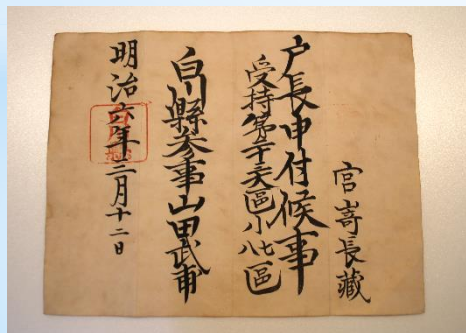 宮嵜長藏
戸長申付候事
受持第大區小七八區
白川縣参事山田武甫
明治六年三月十二日